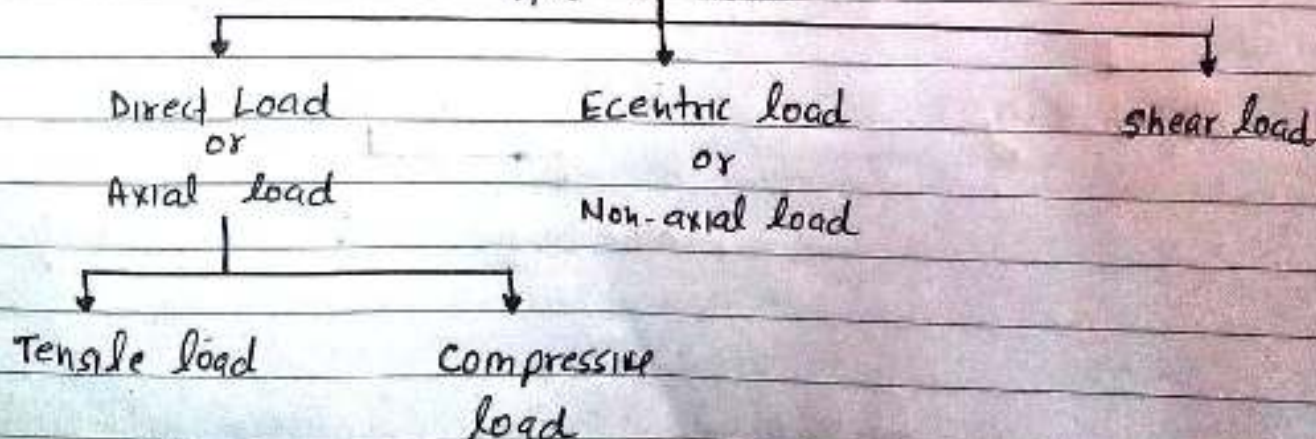 Direct Load
or
Axial load
Ecentric load
or
Non-axial load
shear load
Tensile load
Compressive
load